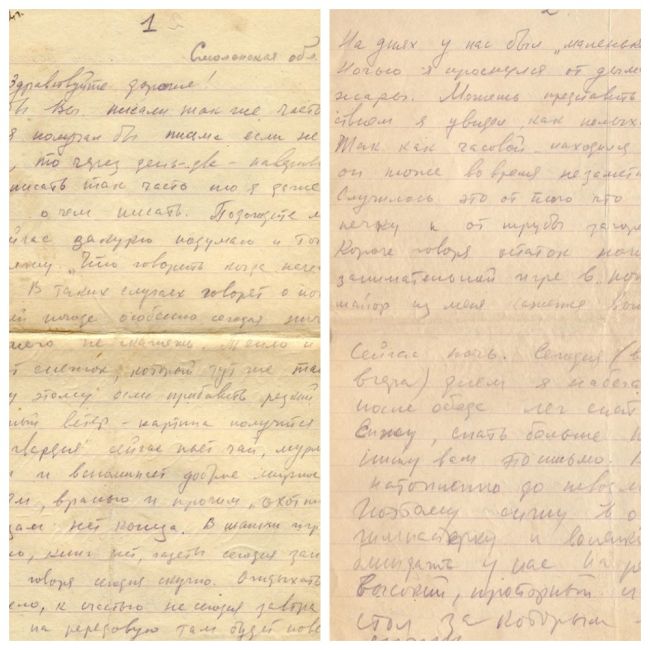 1
Смоленская обл.
Здравствуйте дорогие!
бы Вы писали так же часто
я получал бы письма если не
, то через день-два – наверн
писать так часто что я даже
о чем писать. Подождите м
йчас закурю подумаю и тог
"Что говорить когда нече
В таких случаях говорят о по
погоде особенно сегодня нич
шего не скажешь. Тепло и
т снежок, который тут же та
у этому если прибавить резкий
ветер – картина получится
гвардия сейчас пьет чай,
и и вспоминает доброе мирн
, враньё и прочим, охотн
нет конца. В шашки игр
но, книг нет, газеты сегодня
говоря сегодня скучно. Отдыхать
ело, к счастью не сегодня завтра
на передовую там будет
2
На днях у нас был „маленьк
Ночью я проснулся от дыма
жары. Можешь представить
ствием я увидел, как полых
Так как часовой находился
он тоже вовремя не замети
Случилось это от того что
печку и от трубы загор
Короче говоря остаток ноч
занимательной игре в пож
майор из меня
Сейчас ночь. Сегодня (в
вчера) днем я набега
после обеда лег спат
Сижу, спать больше н
пишу вам это письмо.
натоплено до невозм
Поэтому сижу в о
гимнастерку и
у нас на
Высокий, просторный и
стол за которым –